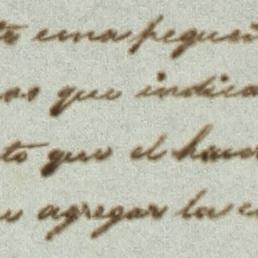 una pequeñ
que indica
to que el hace
agregar la c